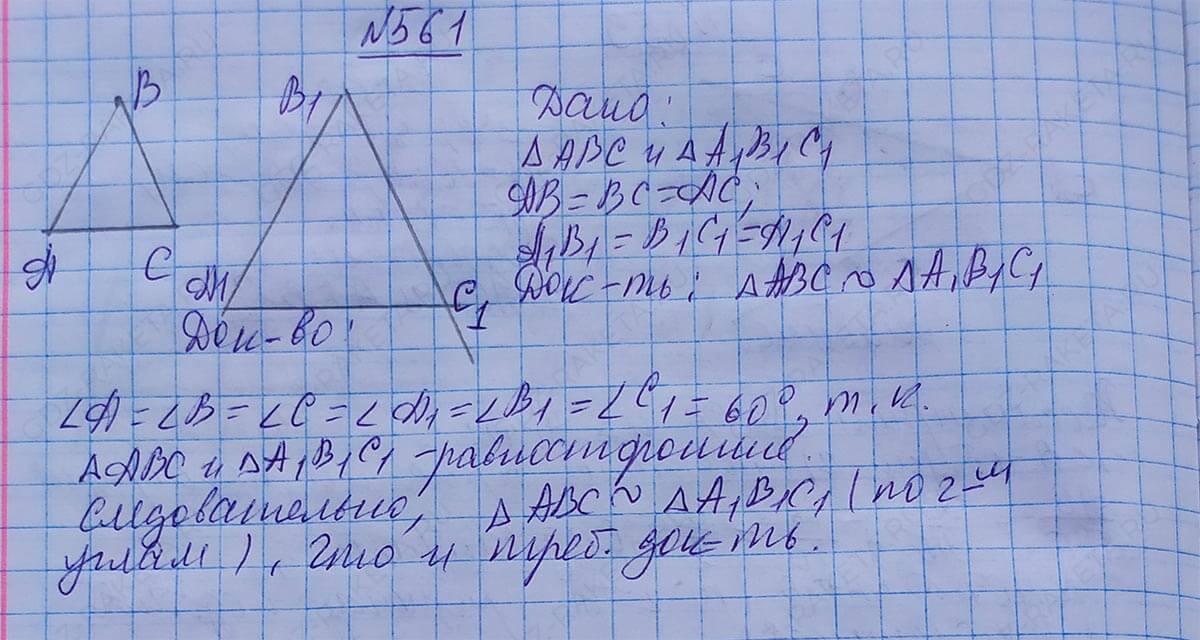 №561
B
B1
A
C
A1
C1
Дано:
△ABC и △A1B1C1
AB=BC=AC;
A1B1=B1C1=A1C1
Док-ть: △ABC ~ △A1B1C1
Док-во:
∠A=∠B=∠C=∠A1=∠B1=∠C1=60°, т.к.
△ABC и △A1B1C1 -равносторонние.
Следовательно, △ABC ~ △A1B1C1 (по 2-м
углам), что и треб. док-ть.